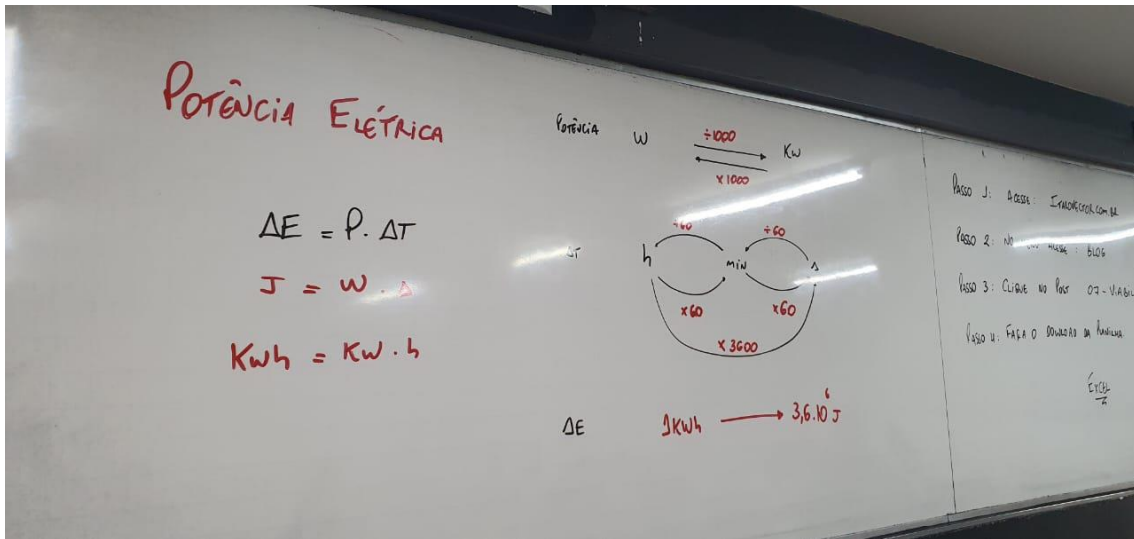 POTÊNCIA ELÉTRICA
ΔE = P. ΔT
J = W . s
Kwh = Kw . h
POTÊNCIA W ÷1000 Kw
x 1000
ΔT h ÷60 MIN ÷60 s
x60 x60
x 3600
ΔE 1Kwh → 3,6.10⁶ J
PASSO 1: ACESSE:
PASSO 2: NO ACESSE: BLOG
PASSO 3: CLIQUE NO POST 07-
PASSO 4: FAÇA O DOWNLOAD DA PLANILHA.